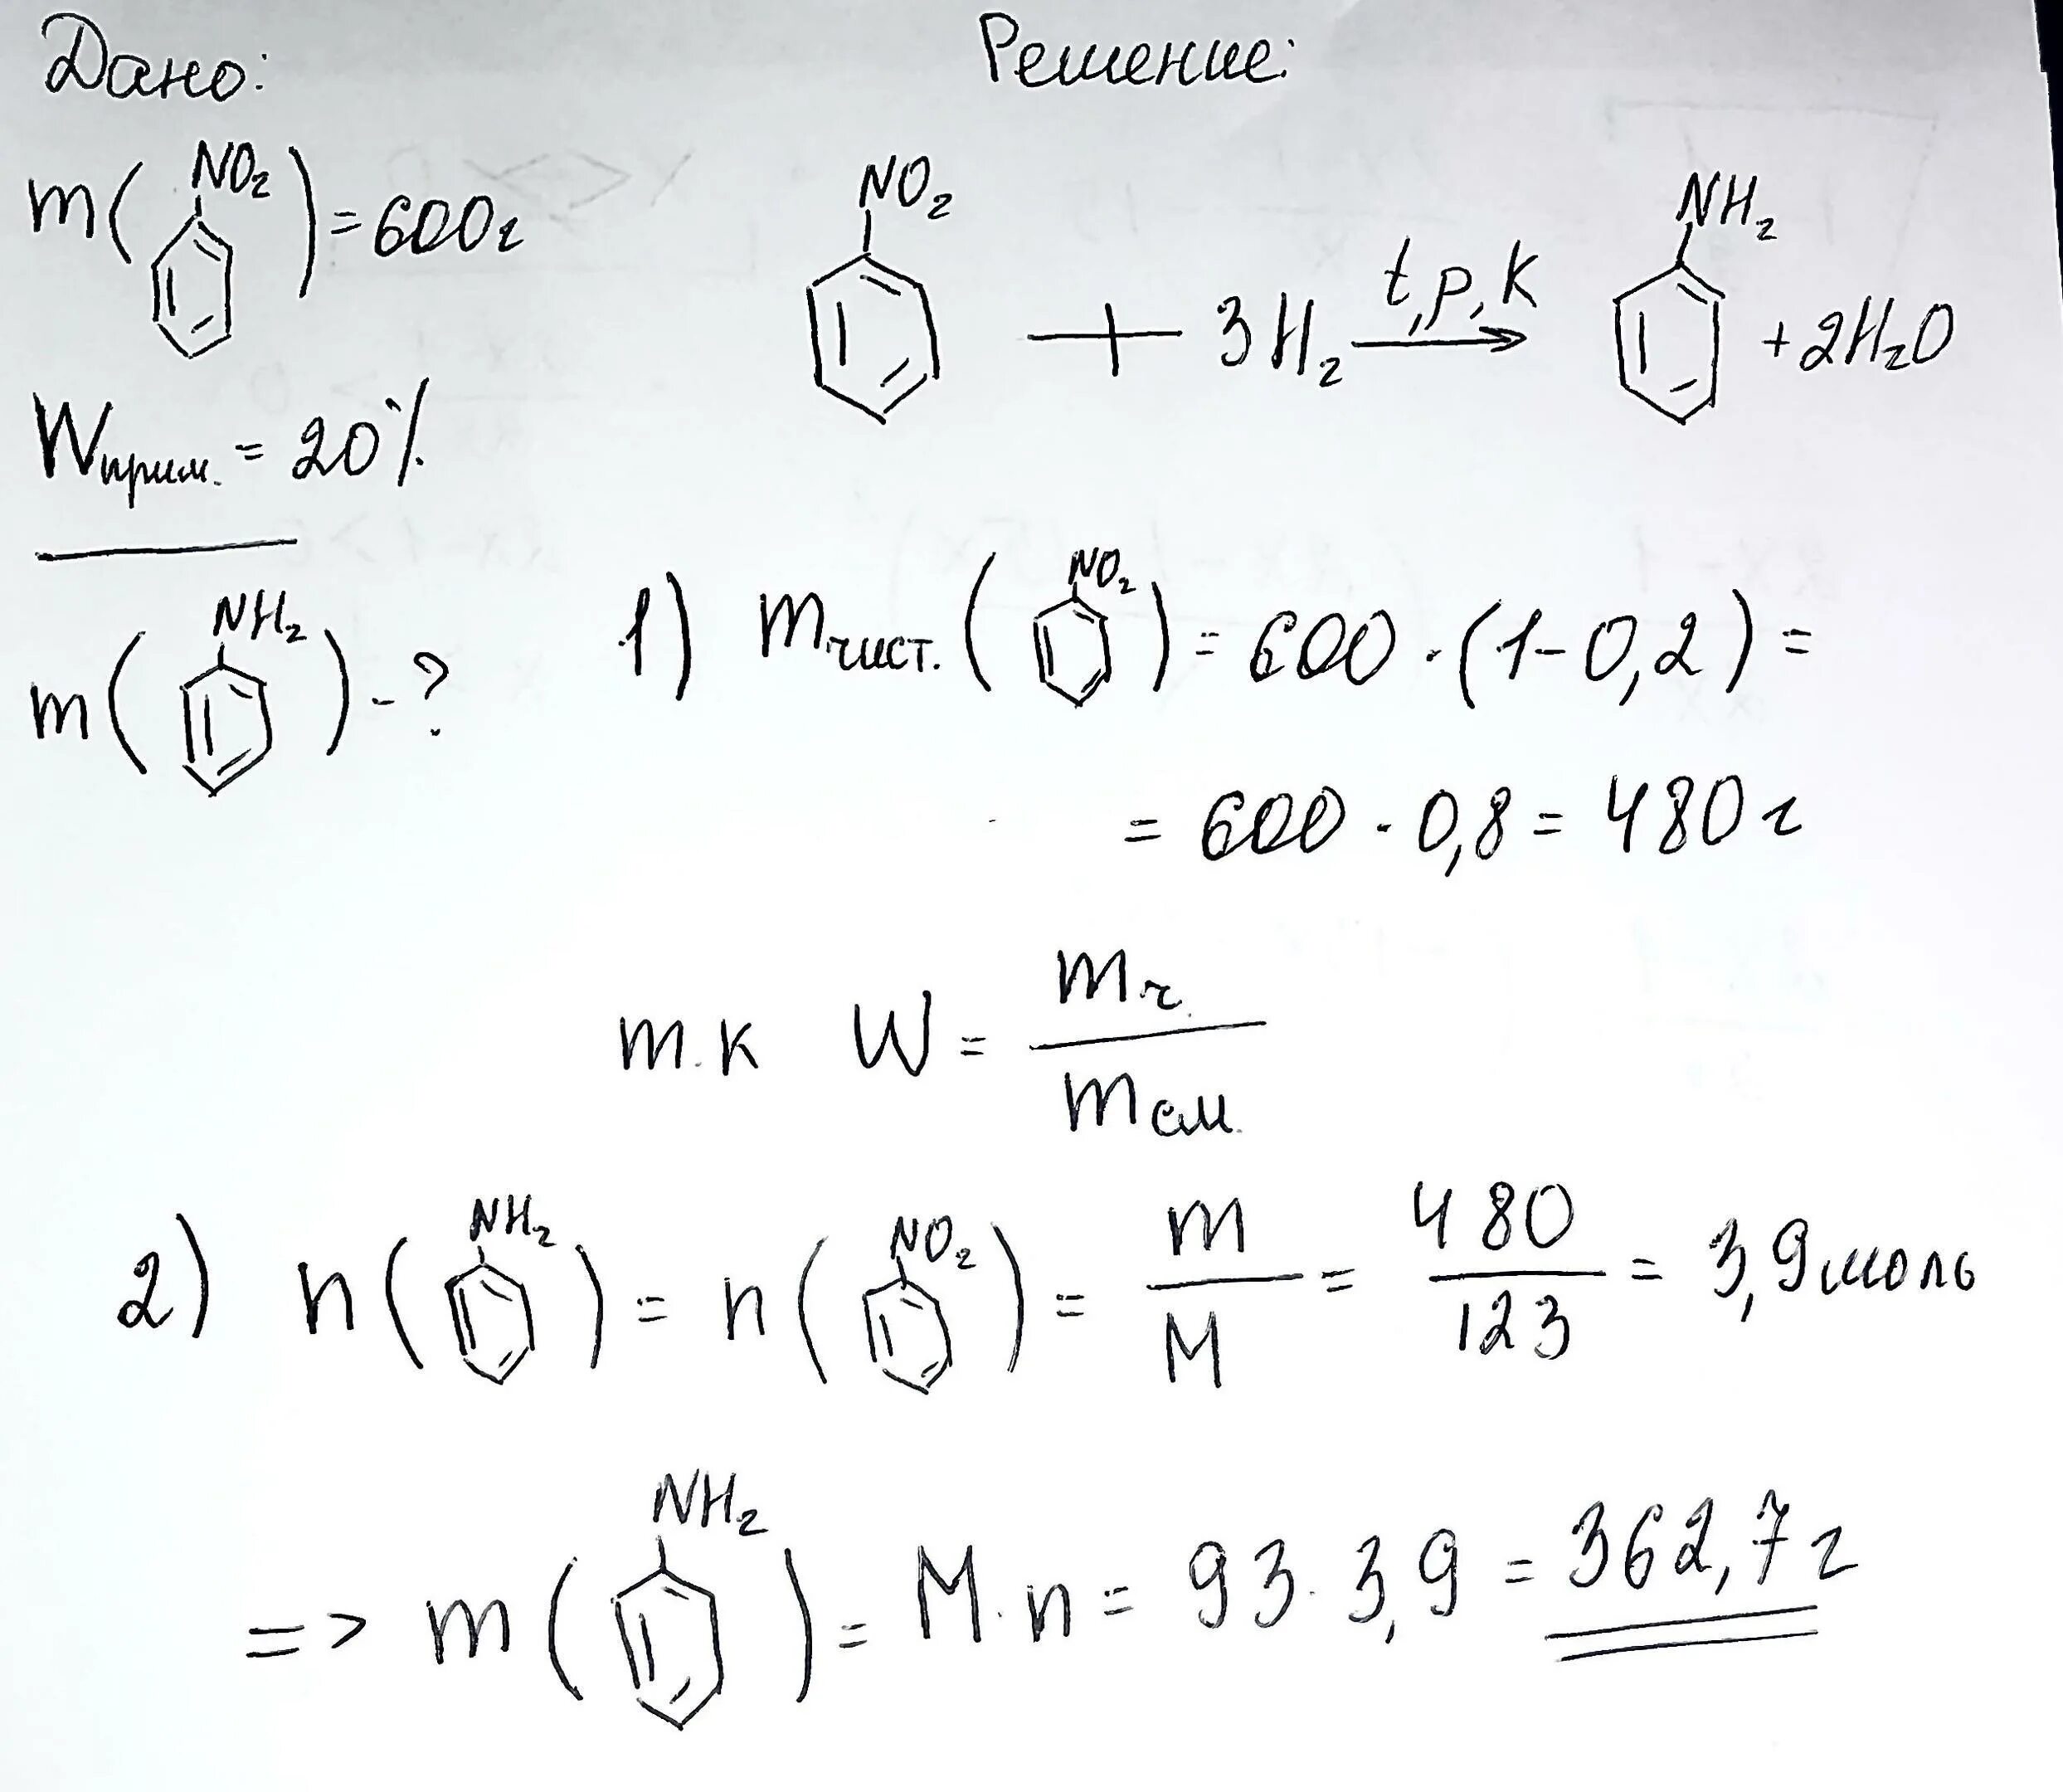 Дано:
Решение:
m( NO₂ ) = 600г
Wприм. = 20%
m( NH₂ ) - ?
NO₂ + 3H₂ t,p,k → NH₂ + 2H₂O
1) mчист. ( NO₂ ) = 600 · (1-0,2) =
= 600 · 0,8 = 480 г
т.к W = mч. / mсм.
2) n( NH₂ ) = n( NO₂ ) = m / M = 480 / 123 = 3,9 моль
=> m( NH₂ ) = M · n = 93 · 3,9 = 362,7 г